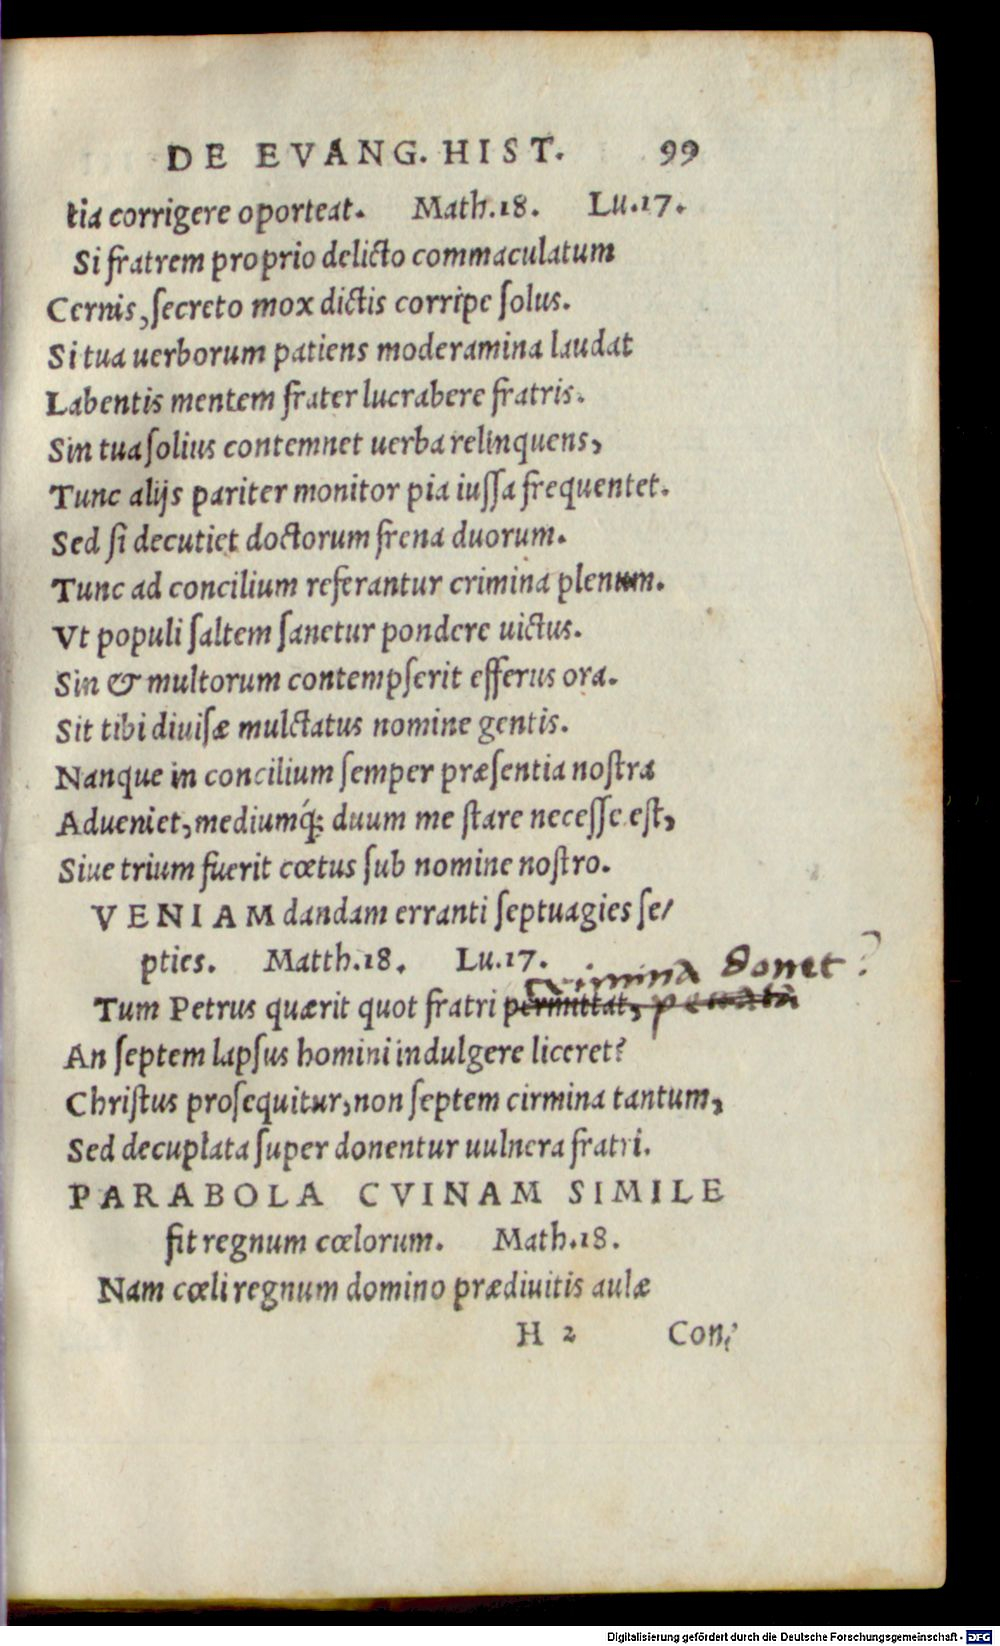 DE EVANG. HIST. 99
tia corrigere oporteat. Math.18. Lu.17.
Si fratrem proprio delicto commaculatum
Cernis, ſecreto mox dictis corripe ſolus.
Si tua uerborum patiens moderamina laudat
Labentis mentem frater lucrabere fratris.
Sin tua ſolius contemnet uerba relinquens,
Tunc alijs pariter monitor pia iuſſa frequentet.
Sed ſi decutiet doctorum frena duorum.
Tunc ad concilium referantur crimina plenum.
Vt populi ſaltem ſanetur pondere uictus.
Sin & multorum contempſerit efferus ora.
Sit tibi diuiſæ mulctatus nomine gentis.
Nanque in concilium ſemper præſentia noſtra
Adueniet, mediumq́; duum me ſtare neceſſe eſt,
Siue trium fuerit cœtus ſub nomine noſtro.
VENIAM dandam erranti ſeptuagies ſe/
pties. Matth.18. Lu.17.
crimina donet?
Tum Petrus quærit quot fratri permittat,
An ſeptem lapſus homini indulgere liceret?
Chriſtus proſequitur, non ſeptem cirmina tantum,
Sed decuplata ſuper donentur uulnera fratri.
PARABOLA CVINAM SIMILE
ſit regnum cœlorum. Math.18.
Nam cœli regnum domino prædiuitis aulæ
H 2 Con/
Digitalisierung gefördert durch die Deutsche Forschungsgemeinschaft - DFG